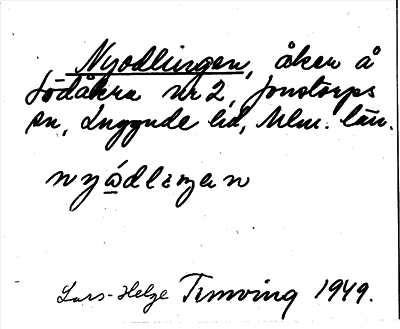 Nyodlingen, åker å
Södåkra nr 2, Jonstorps
sn, Luggude hd, Mlm. län.
nyådlıŋen
Lars-Helge Timving 1949.